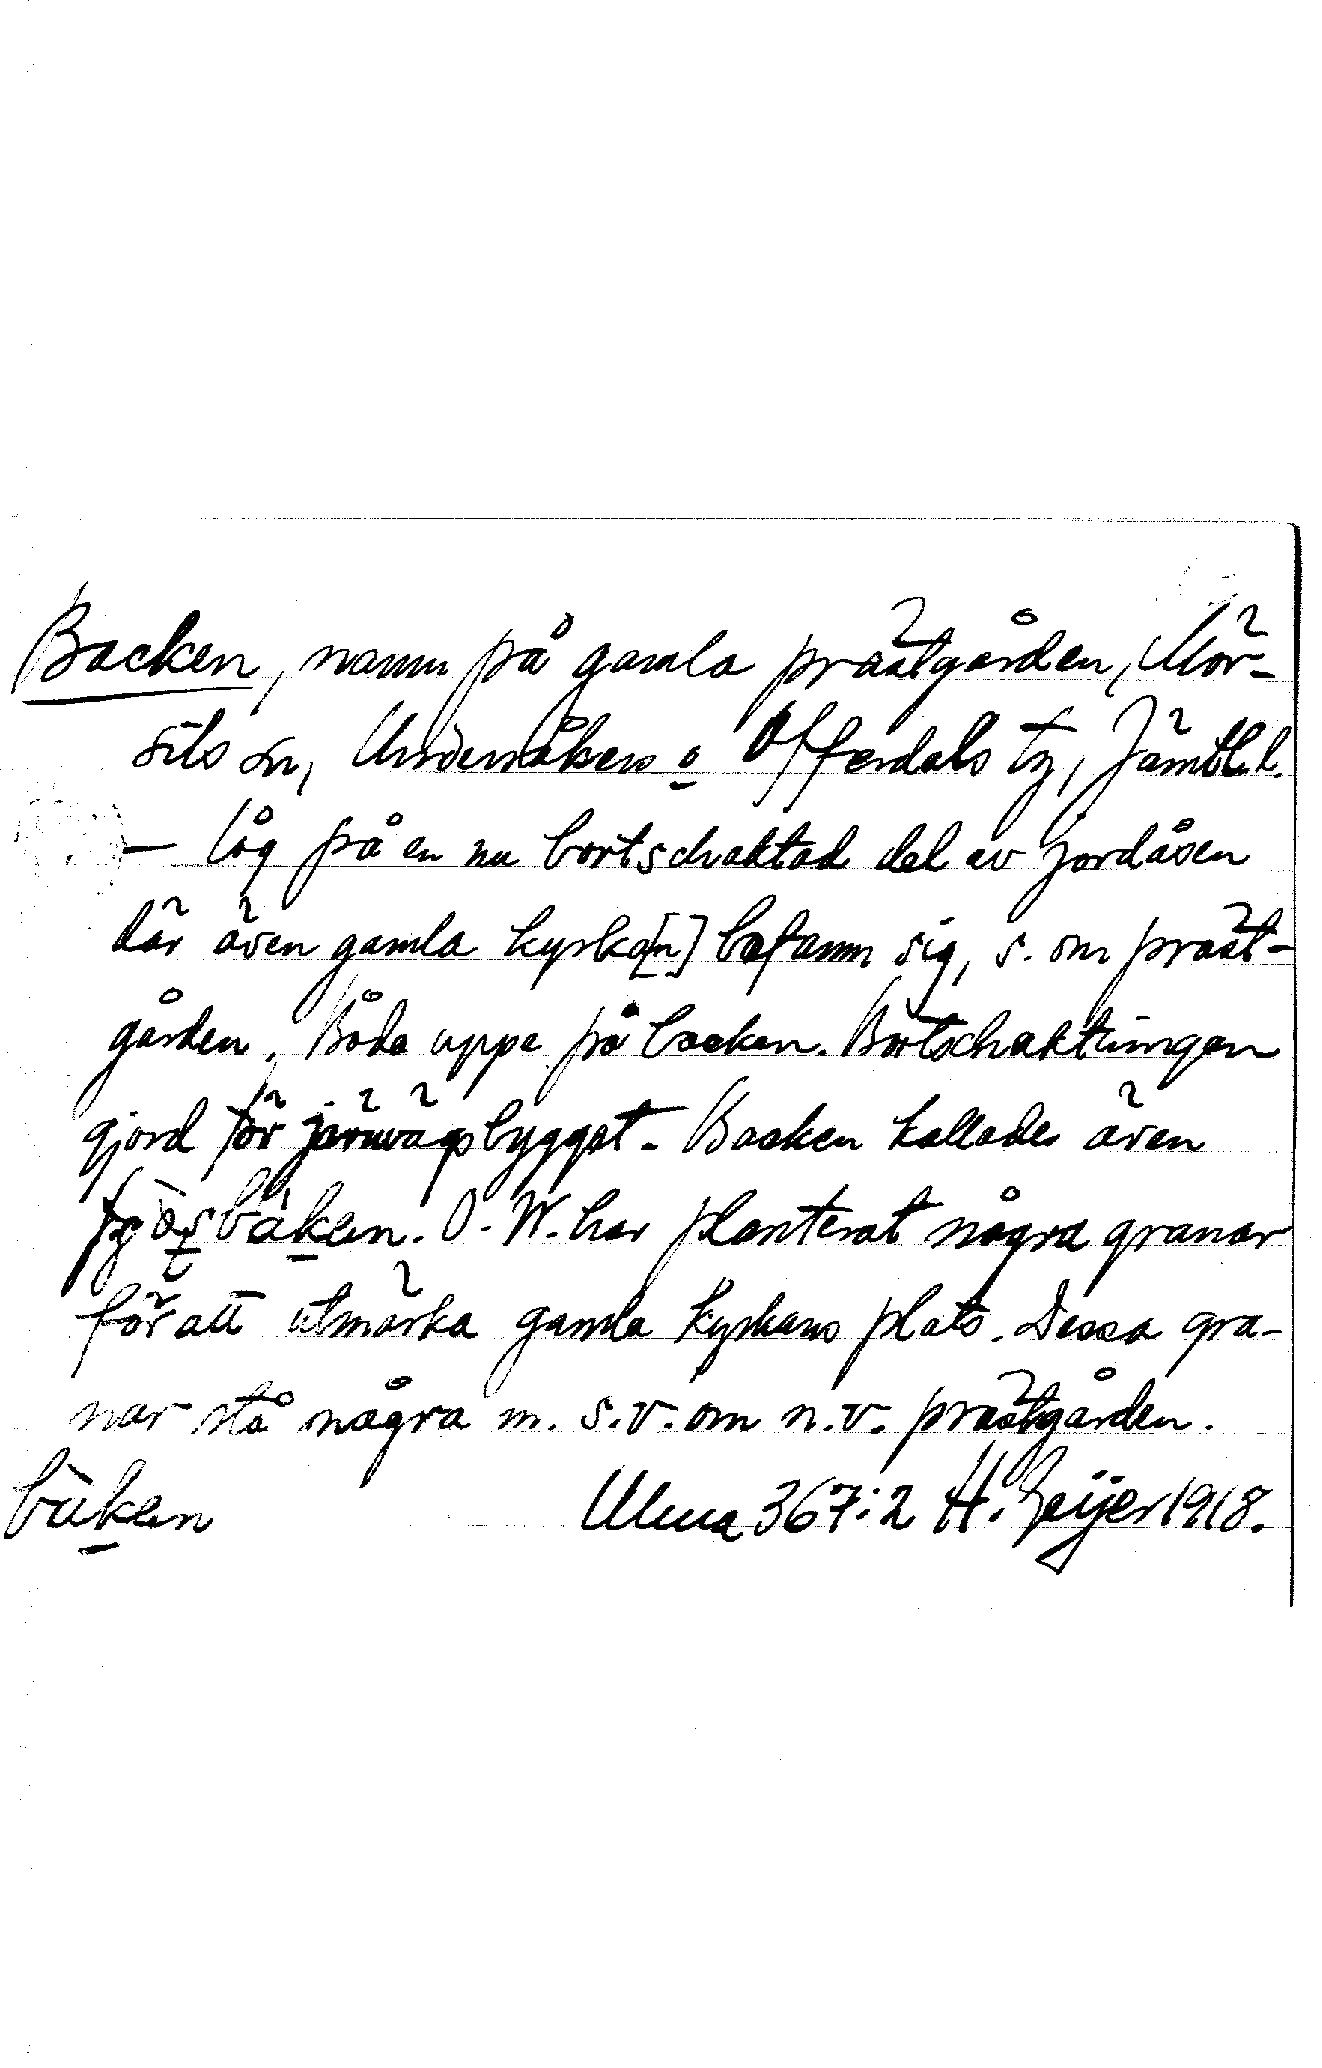 Backen, namn på gamla prästgården, Mör-
sils sn, Undersåkers o Offerdals tg, Jämtl.l.
— låg på en nu bortschaktad del av jordåsen
där även gamla kyrka[n] befann sig, s. om präst-
gården. Båda uppe på backen. Bortschaktningen
gjord för järnvägsbygget. Backen kallades även
bàken. O. W. har planterat några granar
för att utmärka gamla kyrkans plats. Dessa gra-
nar stå några m. s.v. om n.v. prästgården.
bàken Ulma 367:2 H. Geijer 1918.